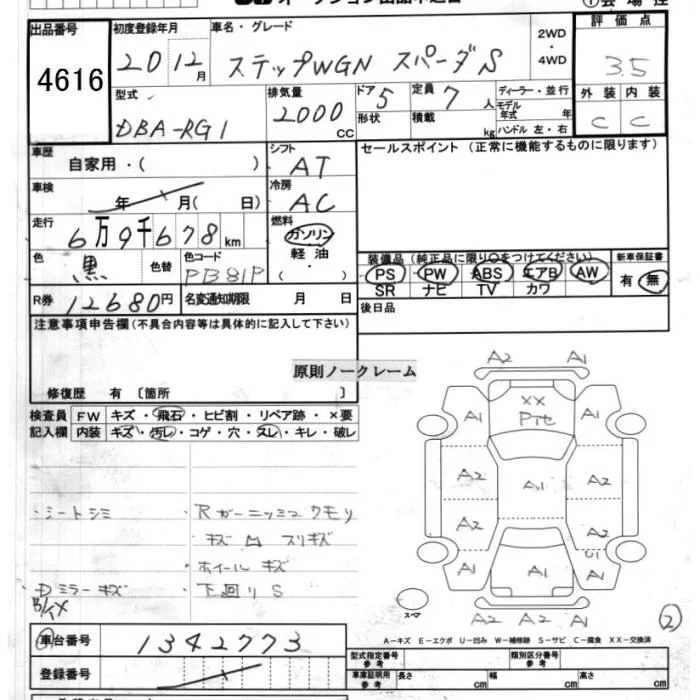 出品番号
4616
初度登録年月
20 12月
車名・グレード
ステップWGN スパーダS
2WD
・
4WD
評価点
3.5
外装 内装
C C
型式
DBA-RG1
排気量
2000 cc
ドア 5
形状
定員 7 人
積載 kg
ディーラー・並行
モデル年式 年
ハンドル 左・右
車歴
自家用・( )
シフト
AT
セールスポイント (正常に機能するものに限ります)
車検
年 月( 日)
冷房
AC
走行
6万9千678km
燃料
ガソリン
軽油
・( )
色
黒
色替
色コード
PB81P
装備品(純正品に限り○をつけてください)
PS PW ABS エアB AW
SR ナビ TV カワ
新車保証書
有 無
R券 12680円
名変通知期限 月 日
後日品
注意事項申告欄(不具合内容等は具体的に記入して下さい)
原則ノークレーム
修復歴 有 〔箇所 〕
検査員記入欄
FW キズ・飛石・ヒビ割・リペア跡・×要
内装 キズ・汚レ・コゲ・穴・スレ・キレ・破レ
・シートシミ
・Rガーニッシュクモリ
キズ凹 スリキズ
・ホイールキズ
・Dミラーキズ
・下回りS
A2 A1
XX
Pイセ
A1 A1
A2 A1 A2
A2 A2
U1
A1 A1 A1
A2 A2 A1
スペア
2
A-キズ E-エクボ U-凹み W-補修跡 S-サビ C-腐食 XX-交換済
車台番号 1342773
登録番号
型式指定番号
参考
類別区分番号
参考
車庫証明用
参考
長さ cm 幅 cm 高さ cm